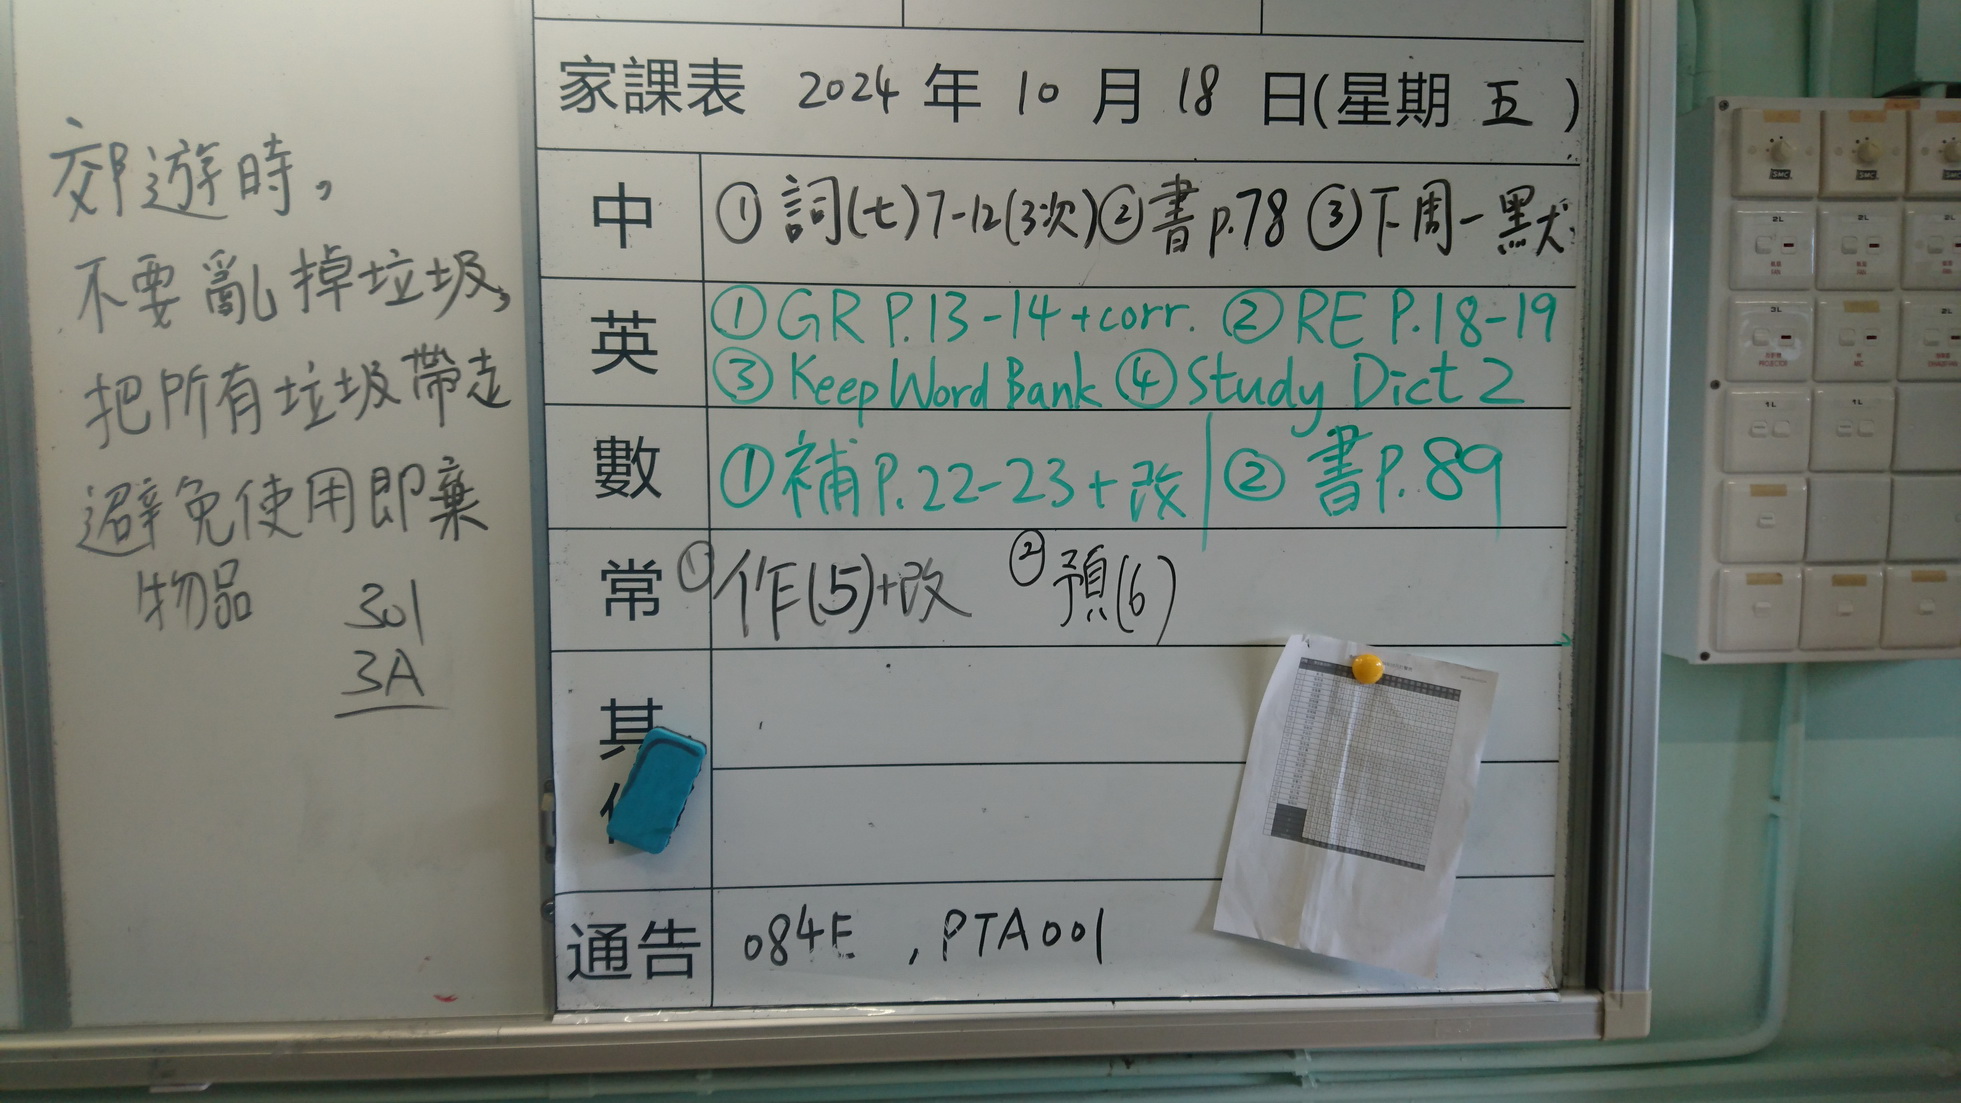 郊遊時，
不要亂掉垃圾，
把所有垃圾帶走
避免使用即棄
物品
301
3A
家課表 2024 年 10 月 18 日(星期 五 )
中 ① 詞(七)7-12(3次)②書p.78 ③下周一默
英 ①GR P.13-14+corr. ②RE P.18-19
③Keep Word Bank ④Study Dict 2
數 ①補P.22-23+改 ② 書P.89
常 ①作(5)+改 ②預(6)
其
通告 084E , PTA001
2L
2L
3L
2L
1L
1L